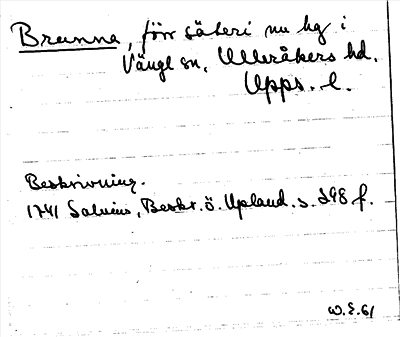 Brunna, förr säteri nu hg i
Vänge sn, Ulleråkers hd.
Upps. l.
Beskrivning.
1741 Salvius, Beskr. ö. Upland. s. 298 f.
W.E.61